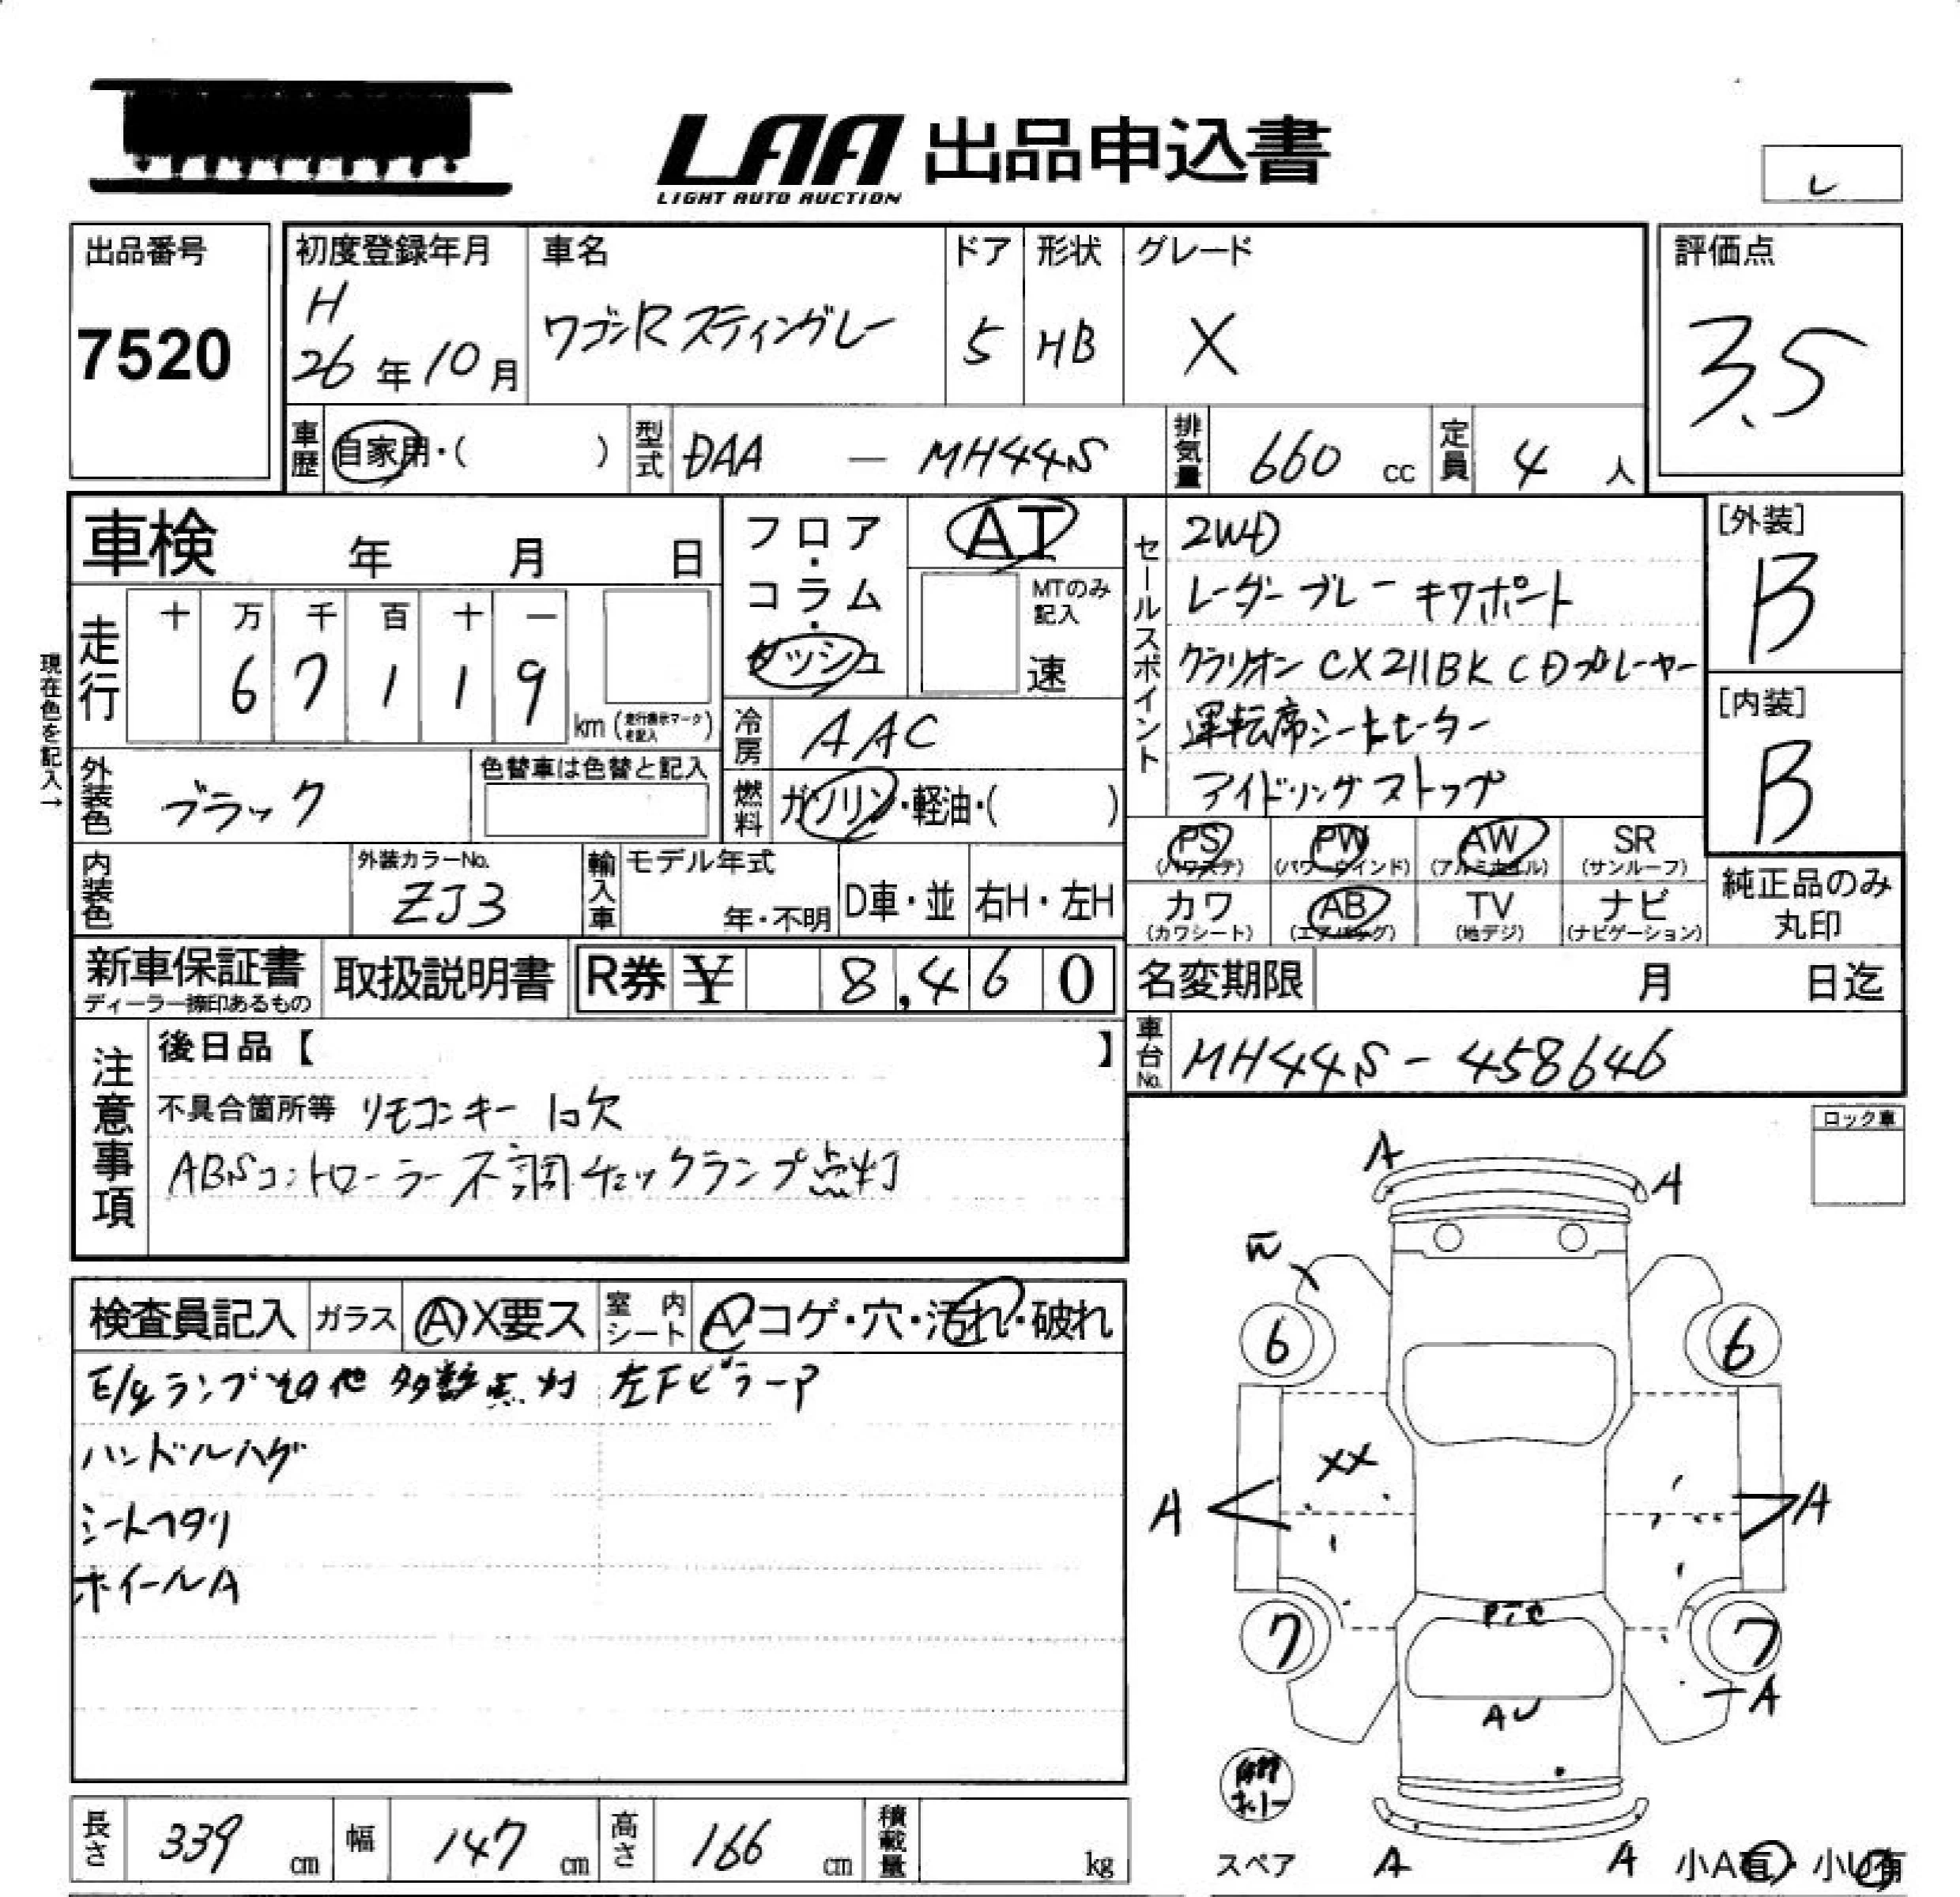 LAA 出品申込書
LIGHT AUTO AUCTION
レ
出品番号
7520
初度登録年月
H
26年10月
車名
ワゴンRスティングレー
ドア
5
形状
HB
グレード
X
評価点
3.5
車歴 自家用・( )
型式 DAA — MH44S
排気量 660 cc
定員 4 人
車検 年 月 日
現在色を記入→
走行 十 万 千 百 十 一
6 7 1 1 9 km (走行表示マークを記入)
フロア・コラム・ダッシュ
AT
MTのみ記入
速
冷房 AAC
燃料 ガソリン・軽油・( )
外装色 ブラック
色替車は色替と記入
内装色
外装カラーNo.
ZJ3
輸入車 モデル年式
年・不明
D車・並
右H・左H
セールスポイント
2WD
レーダーブレーキサポート
クラリオン CX211BK CDプレーヤー
運転席シートヒーター
アイドリングストップ
[外装]
B
[内装]
B
PS (パワステ)
PW (パワーウインド)
AW (アルミホイル)
SR (サンルーフ)
カワ (カワシート)
AB (エアバッグ)
TV (地デジ)
ナビ (ナビゲーション)
純正品のみ
丸印
新車保証書
ディーラー捺印あるもの
取扱説明書
R券 ¥ 8,460
名変期限 月 日迄
車台No. MH44S-458646
注意事項
後日品【 】
不具合箇所等 リモコンキー 1コ欠
ABSコントローラー不調 チェックランプ点灯
ロック車
検査員記入
ガラス A X要ス
室内シート A・コゲ・穴・汚れ・破れ
E/gランプその他 多数点灯 左FピラーP
ハンドルハゲ
シートヘタリ
ホイールA
A
A
6
6
XX
A
A
7
7
Pその他
AU
A
スペア
A
A
小A有・小U有
長さ 339 cm
幅 147 cm
高さ 166 cm
積載量 kg